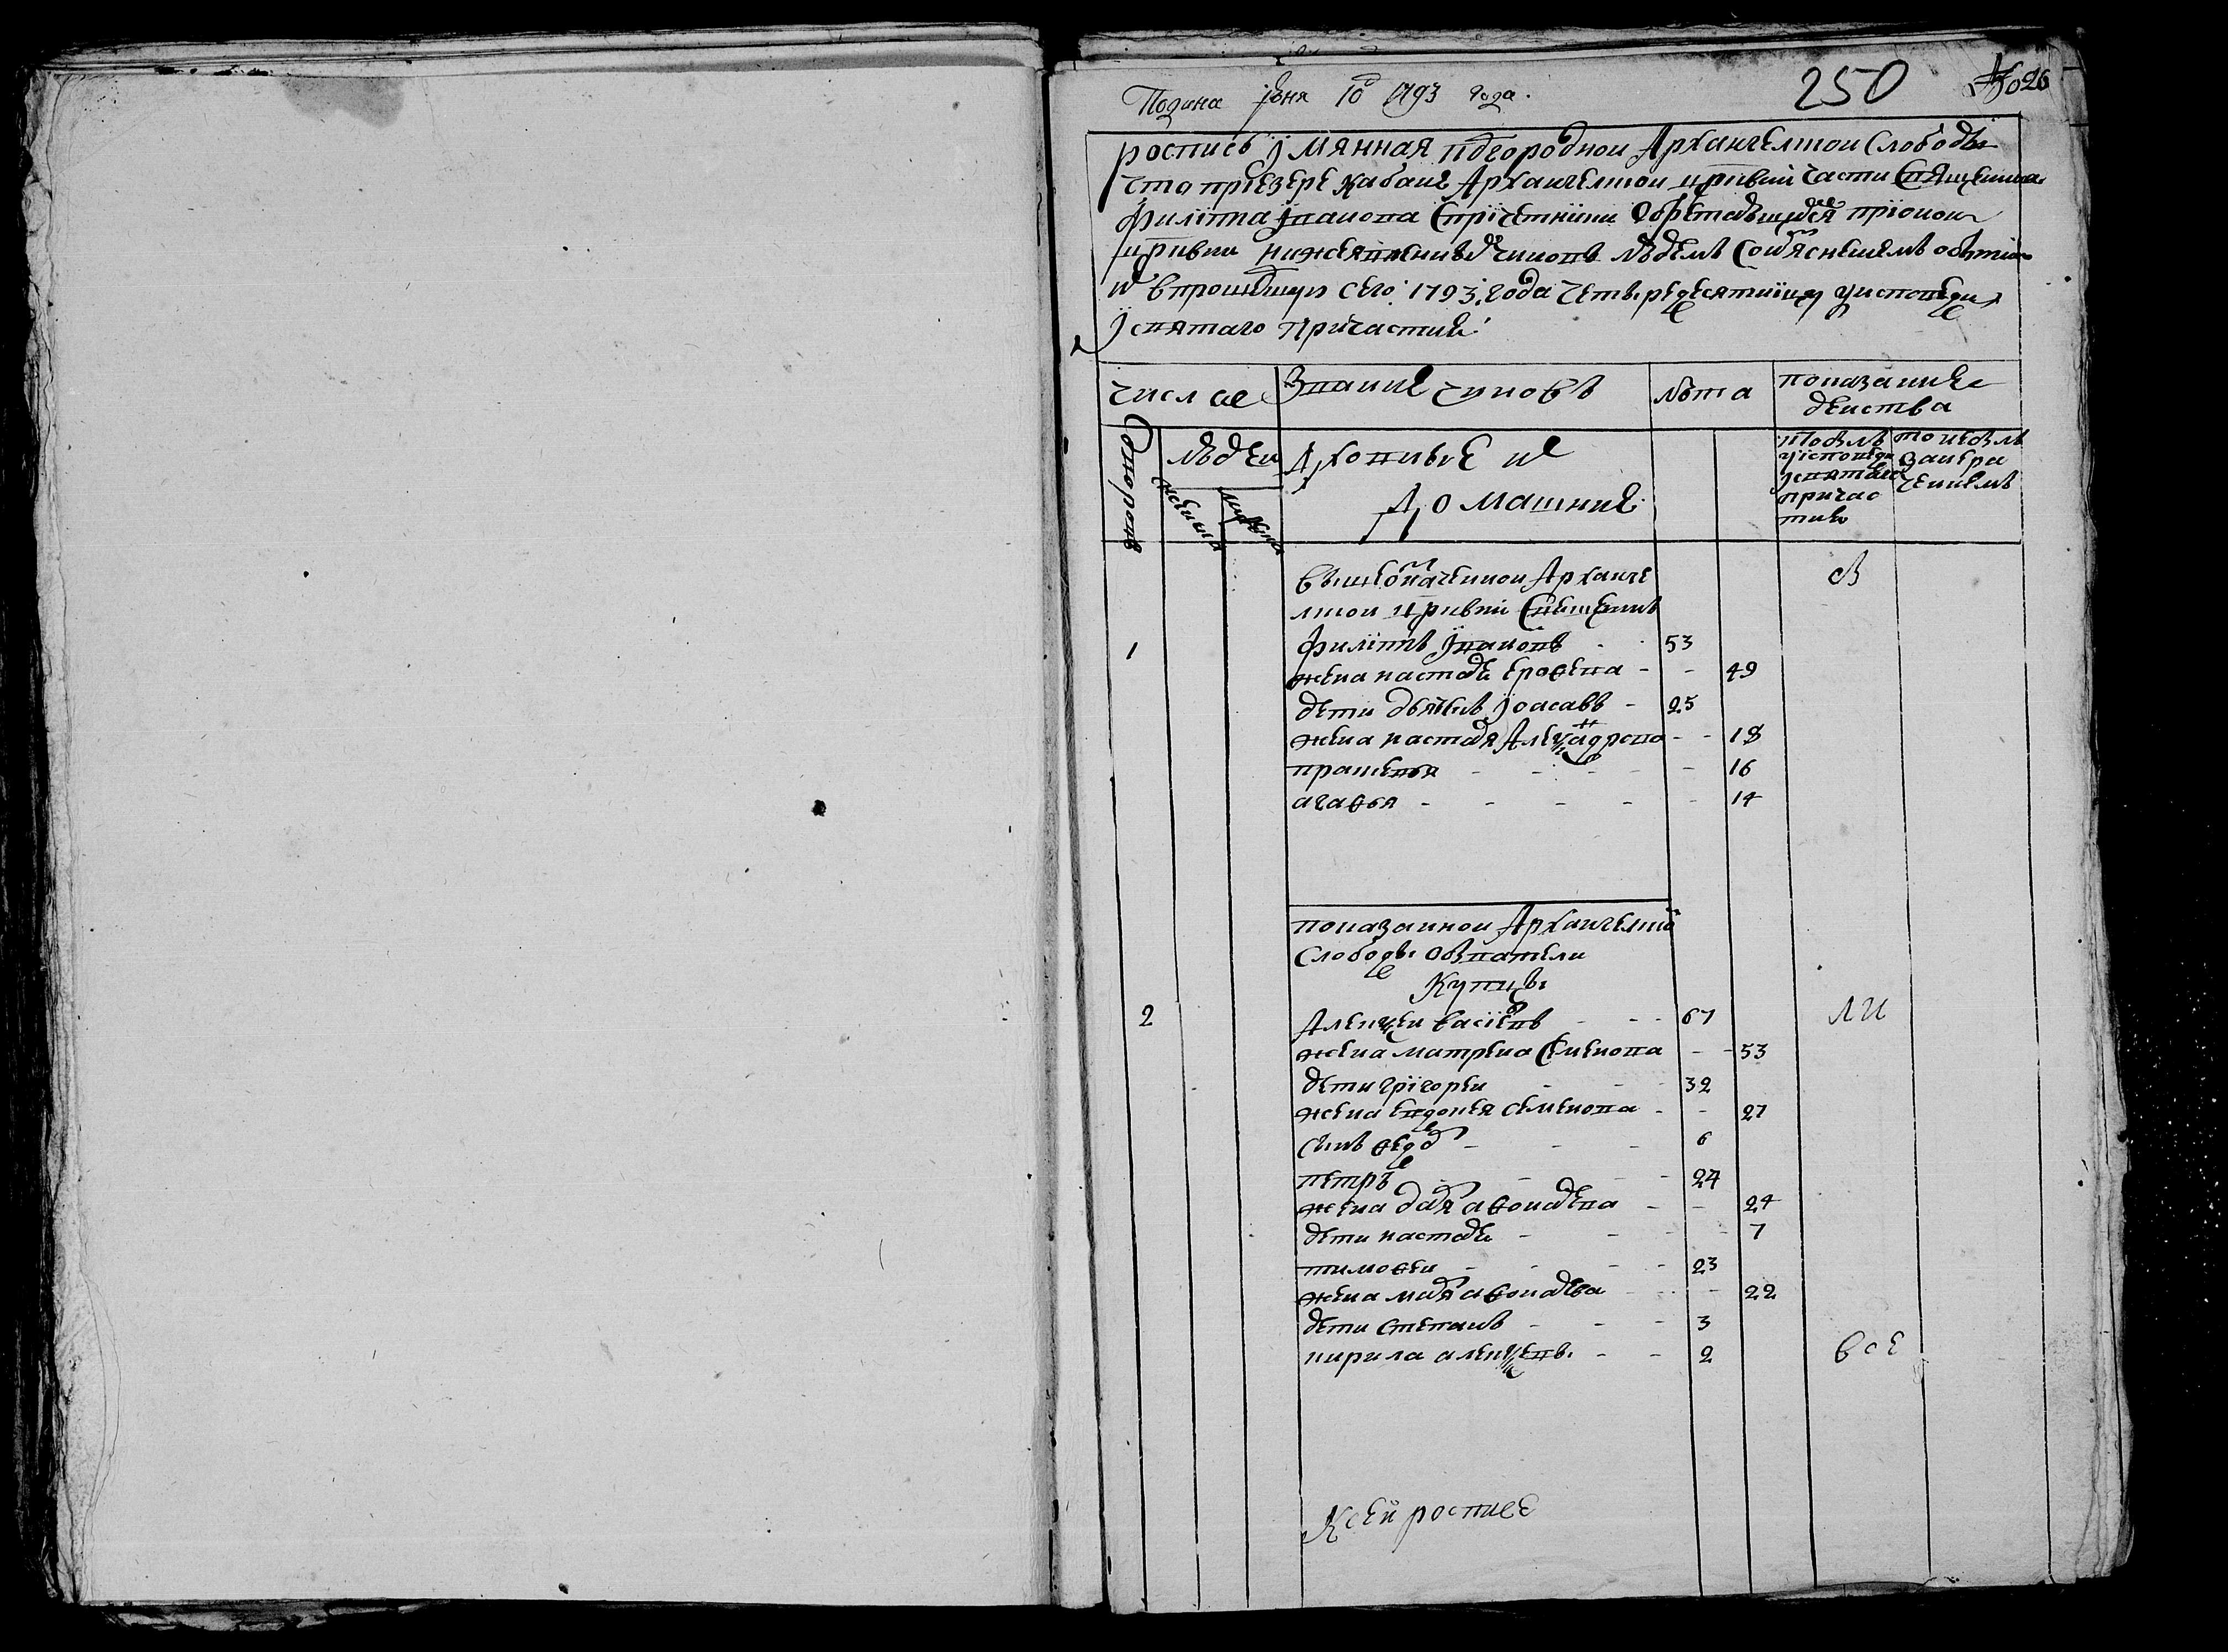 Подана июня 10 1793 года.
250
№ 26
роспись имянная пдгородной Архангелской слободы
что при езере Кабане Архангелской церкви части священника
Филиппа Иванова с причетники обретающихся при оной
церкви нижеявленных чинов людем со изъяснением
в прошедшую сего 1793 года четыредесятницу у исповеди
и святаго причастия
число
звание чинов
лета
показание действа
дворов
людей
духовные и
домашние
мужеска
женска
кто был у исповеди и святаго причастия
вышеозначенной Арханге
лской церкви священник
1 Филипп Иванов - 53
жена Настасья Ерофеева - - 49
дети дьячек Иоасаф - 25
жена Настасья Александрова - - 18
Прасковья - - - 16
Агафья - - - 14
показанной Архангелской
слободы обыватели
Купцы
2 Алексей Васильев - - 67
жена Матрена Семенова - - 53
дети Григорей - - 32
жена Евдокея Семенова - - 27
сын Федор - - - 6
Петр - - 24
жена Дарья Афонасьева - - 24
дети Настасья - - - 7
Тимофей - - - 23
жена Марья Афонасьева - - 22
дети Степан - - - 3
Кирила Алексеев - - 2
бы
ли
все
К сей росписе